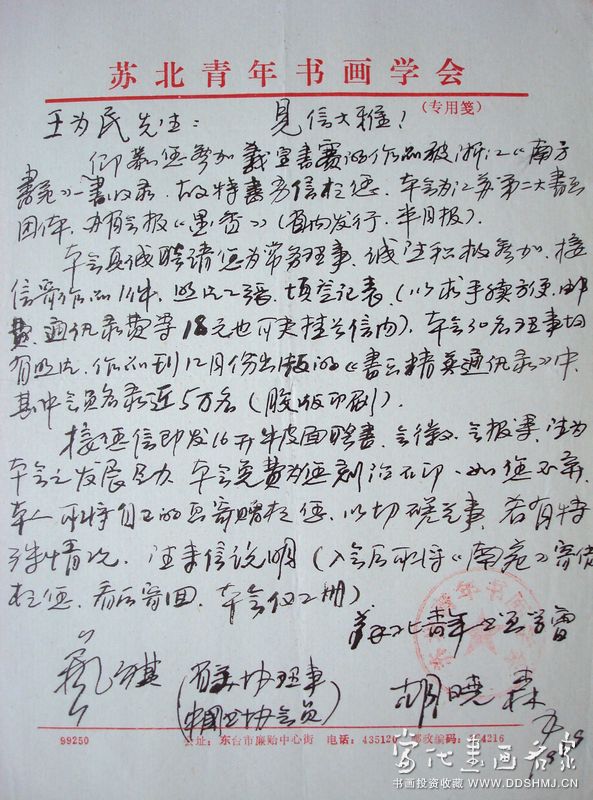 苏北青年书画学会
(专用笺)
王为民先生: 见信大雅!
仰慕您参加 书赛的作品被浙江《南方
书苑》一书收录,故特 信于您,本会为江苏第二大书画
团体,办有会报《墨香》(省内发行,半月报)。
本会真诚聘请您为常务理事,诚望积极参加,接
信寄作品1件,照片2张,填登记表(以求手续方便,邮
费、通讯录费等18元也可夹挂号信内)。本会30名理事均
有照片、作品刊12月份出版的《书画精英通讯录》中,
其中会员名录近5万名(胶版印刷)。
接您信即发16开牛皮面聘书、会徽、会报果,望为
本会之发展尽力,本会免费为您刻治石印,如您不弃,
本人可将自己的画寄赠于您,以切磋艺事,若有特
殊情况,望来信说明(入会后可将《南苑》寄借
于您,看后寄回,本会仅2册)
苏北青年书画学会
(省美协理事
中国书协会员)
胡晓森
99250
会址:东台市廉贻中心街 电话:435120 邮政编码:224216
当代书画名家
书画投资收藏 WWW.DDSHMJ.CN